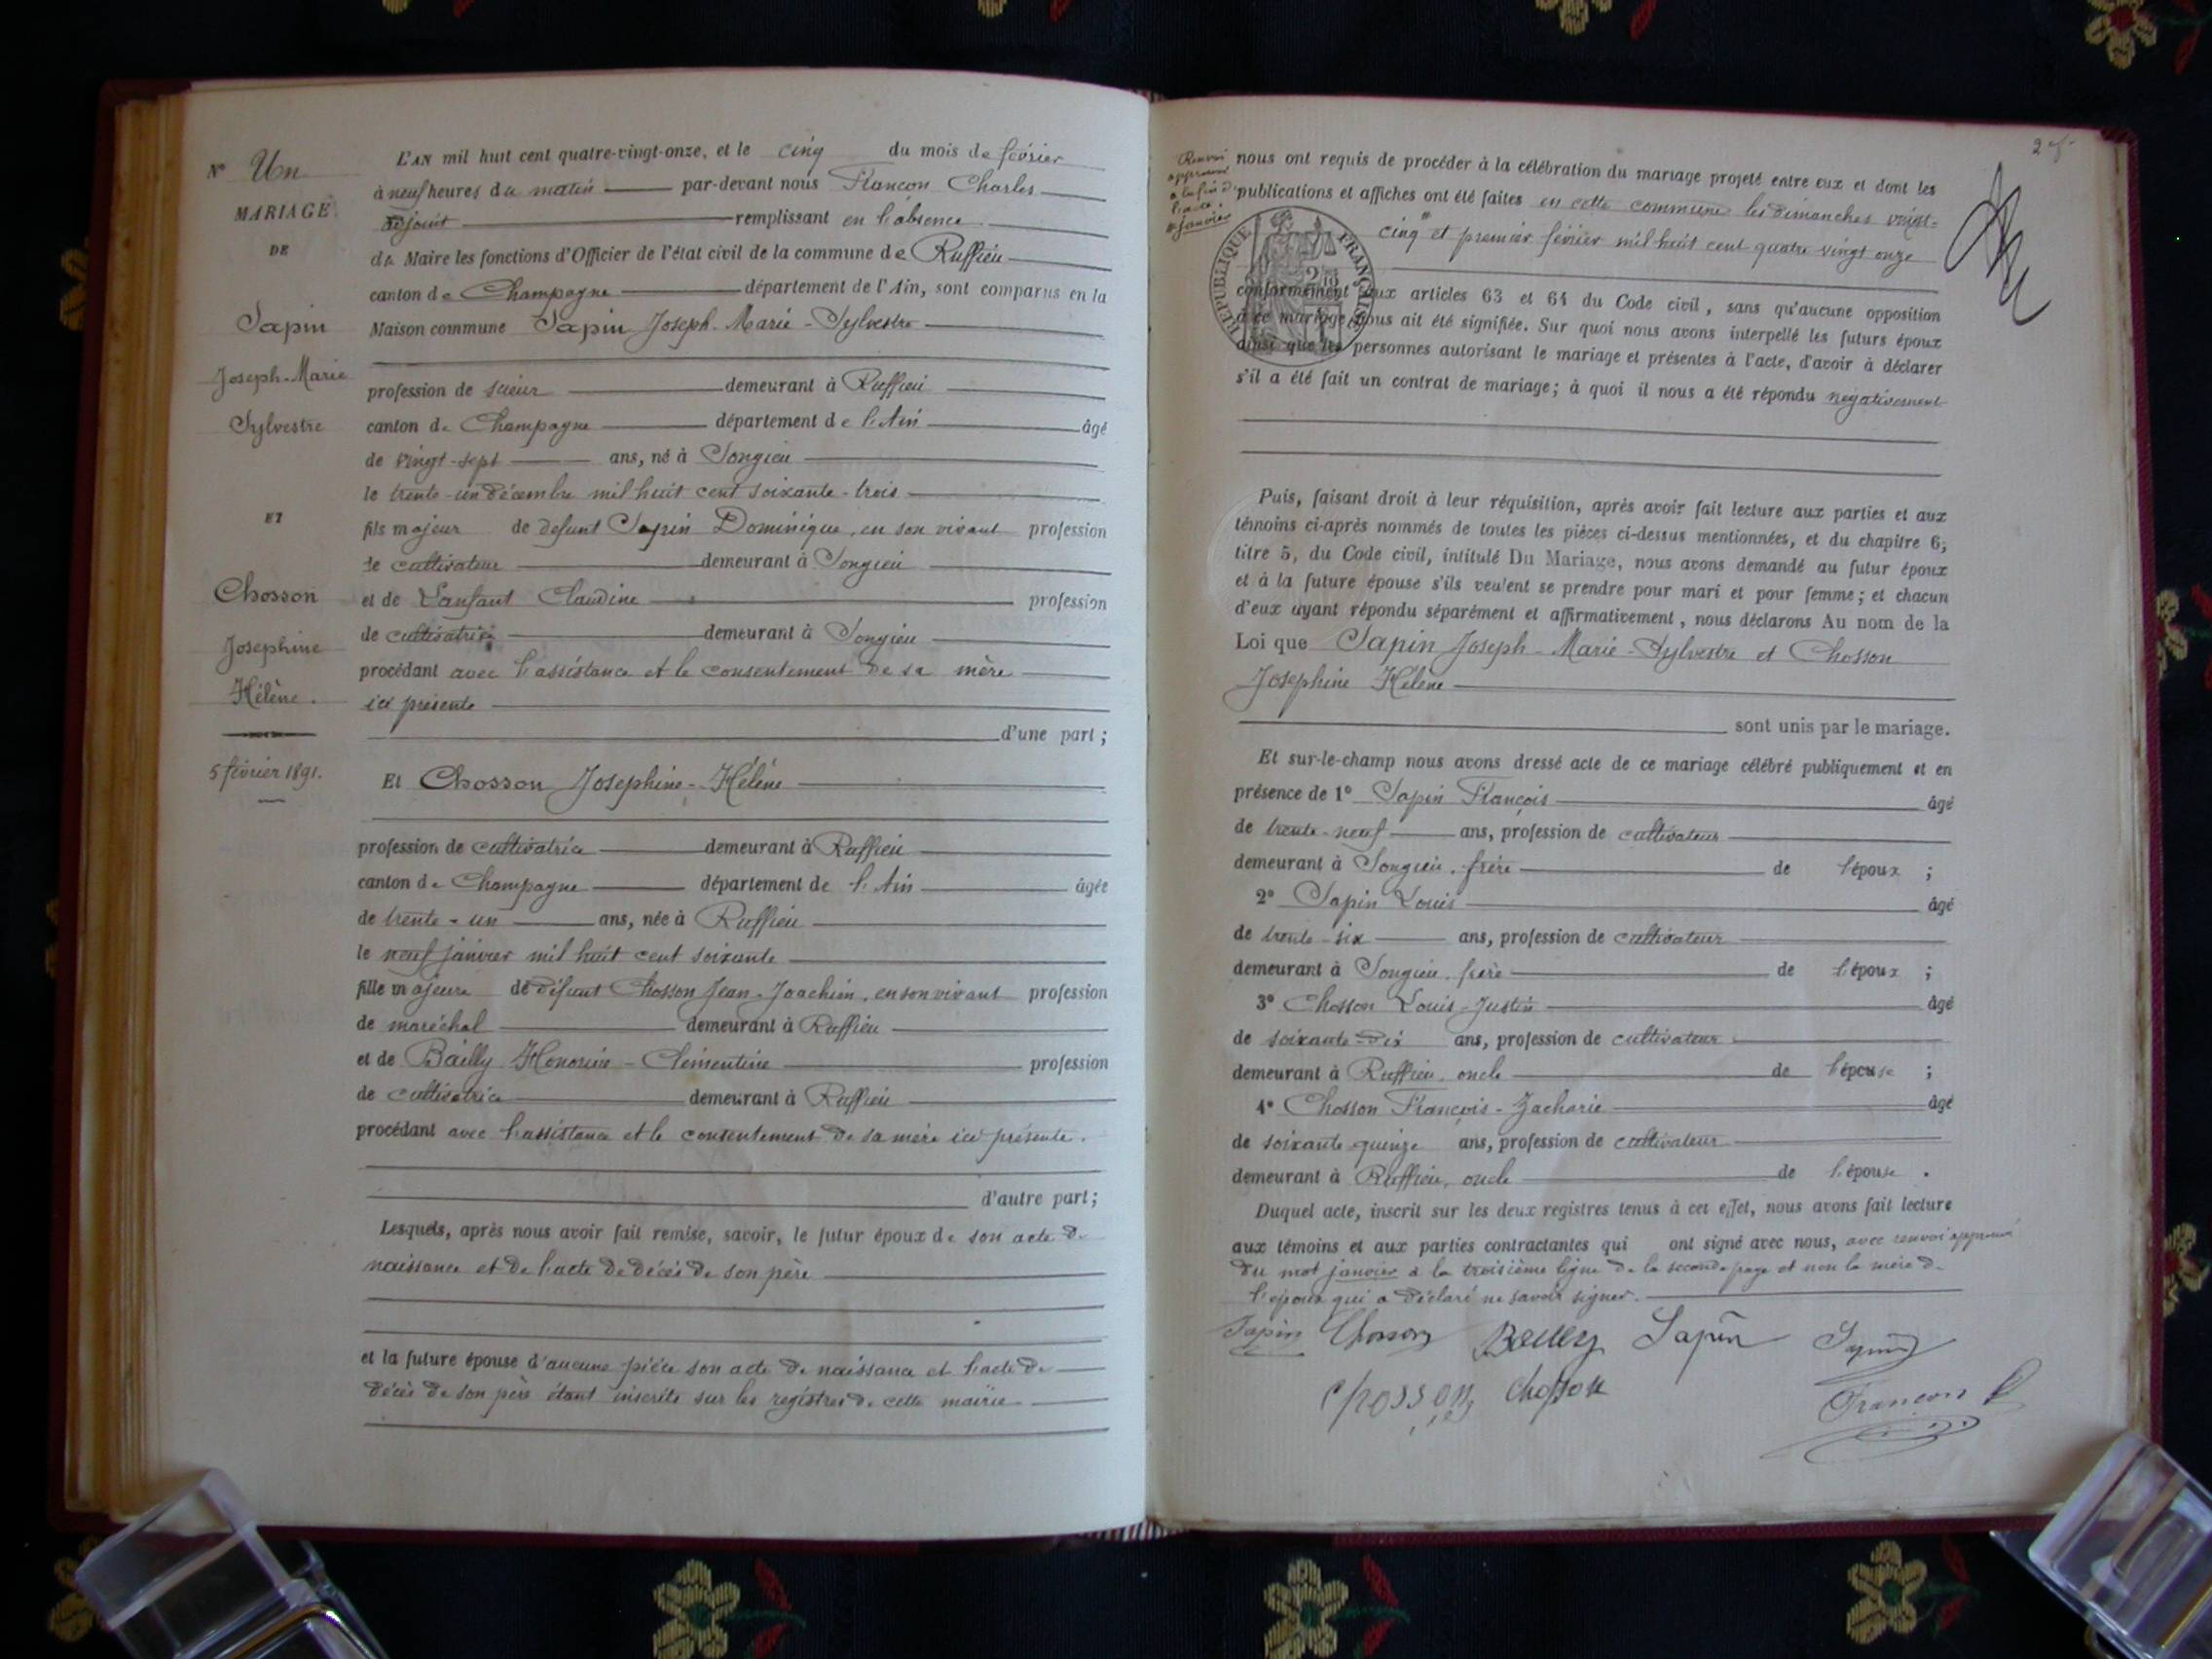 N° Un
MARIAGE
DE
Sapin
Joseph-Marie
Sylvestre
ET
Chosson
Josephine
Hélène.
5 février 1891.
L'AN mil huit cent quatre-vingt-onze, et le cinq du mois de février
à neuf heures du matin par-devant nous Francon Charles
adjoint remplissant en l'absence
du Maire les fonctions d'Officier de l'état civil de la commune de Ruffieu
canton de Champagne département de l'Ain, sont comparus en la
Maison commune Sapin Joseph-Marie-Sylvestre
profession de scieur demeurant à Ruffieu
canton de Champagne département de l'Ain âgé
de vingt-sept ans, né à Songieu
le trente-un décembre mil huit cent soixante-trois
fils majeur de defunt Sapin Dominique, en son vivant profession
de cultivateur demeurant à Songieu
et de Lanfant Claudine profession
de cultivatrice demeurant à Songieu
procédant avec l'assistance et le consentement de sa mère
ici présente
d'une part;
Et Chosson Josephine-Hélène
profession de cultivatrice demeurant à Ruffieu
canton de Champagne département de l'Ain âgée
de trente-un ans, née à Ruffieu
le neuf janvier mil huit cent soixante
fille majeure de défunt Chosson Jean-Joachim, en son vivant profession
de maréchal demeurant à Ruffieu
et de Bailly Honorine-Clémentine profession
de cultivatrice demeurant à Ruffieu
procédant avec l'assistance et le consentement de sa mère ici présente.
d'autre part;
Lesquels, après nous avoir fait remise, savoir, le futur époux de son acte de
naissance et de l'acte de décès de son père
et la future épouse d'aucune pièce son acte de naissance et l'acte de
décès de son père étant inscrits sur les registres de cette mairie
Renvoi
approuvé
à la fin de
l'acte:
janvier
nous ont requis de procéder à la célébration du mariage projeté entre eux et dont les
publications et affiches ont été faites en cette commune les dimanches vingt-
cinq et premier février mil huit cent quatre vingt onze
REPUBLIQUE FRANÇAISE
conformément aux articles 63 et 64 du Code civil, sans qu'aucune opposition
à ce mariage nous ait été signifiée. Sur quoi nous avons interpellé les futurs époux
ainsi que les personnes autorisant le mariage et présentes à l'acte, d'avoir à déclarer
s'il a été fait un contrat de mariage; à quoi il nous a été répondu négativement
Puis, faisant droit à leur réquisition, après avoir fait lecture aux parties et aux
témoins ci-après nommés de toutes les pièces ci-dessus mentionnées, et du chapitre 6,
titre 5, du Code civil, intitulé Du Mariage, nous avons demandé au futur époux
et à la future épouse s'ils veulent se prendre pour mari et pour femme; et chacun
d'eux ayant répondu séparément et affirmativement, nous déclarons Au nom de la
Loi que Sapin Joseph-Marie-Sylvestre et Chosson
Josephine Hélène
sont unis par le mariage.
Et sur-le-champ nous avons dressé acte de ce mariage célébré publiquement et en
présence de 1° Sapin François âgé
de trente-neuf ans, profession de cultivateur
demeurant à Songieu, frère de l'époux ;
2° Sapin Louis âgé
de trente-six ans, profession de cultivateur
demeurant à Songieu, frère de l'époux ;
3° Chosson Louis-Justin âgé
de soixante-dix ans, profession de cultivateur
demeurant à Ruffieu, oncle de l'épouse ;
4° Chosson François-Zacharie âgé
de soixante quinze ans, profession de cultivateur
demeurant à Ruffieu, oncle de l'épouse .
Duquel acte, inscrit sur les deux registres tenus à cet effet, nous avons fait lecture
aux témoins et aux parties contractantes qui ont signé avec nous, avec renvoi approuvé
du mot janvier à la troisième ligne de la seconde page et non la mère de
l'époux qui a déclaré ne savoir signer.
Sapin Chosson Bailly Sapin Sapin
Chosson Chosson
Francon C